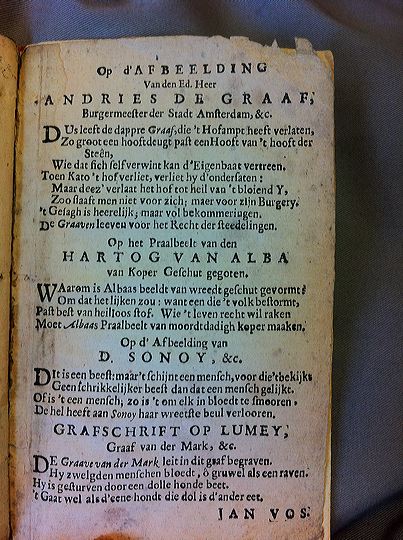 Op d'AFBEELDING
Van den Ed. Heer
ANDRIES DE GRAAF,
Burgermeester der Stadt Amsterdam, &c.
DUs leeft de dappre Graaf, die 't Hofampt heeft verlaten,
Zo groot een hooftdeugt past een Hooft van 't hooft der
Steên,
Wie dat sich self verwint kan d'Eigenbaat vertreen.
Toen Kato 't hof verliet, verliet hy d'ondersaten:
Maar deez' verlaat het hof tot heil van 't bloiend Y,
Zoo slaaft men niet voor zich; maer voor zijn Burgery.
't Gesagh is heerelijk; maar vol bekommeringen.
De Graaven leeven voor het Recht der steedelingen.
Op het Praalbeelt van den
HARTOG VAN ALBA
van Koper Geschut gegoten.
WAarom is Albaas beeldt van wreedt geschut gevormt?
Om dat het lijken zou: want een die 't volk bestormt,
Past best van heilloos stof. Wie 't leven recht wil raken
Moet Albaas Praalbeelt van moordtdadigh koper maaken.
Op d' Afbeelding van
D. SONOY, &c.
DIt is een beest: maar 't schijnt een mensch, voor die 't bekijkt
Geen schrikkelijker beest dan dat een mensch gelijkt.
Of is 't een mensch; zo is 't om elk in bloedt te smooren.
De hel heeft aan Sonoy haar wreetste beul verlooren.
GRAFSCHRIFT OP LUMEY,
Graaf van der Mark, &c.
DE Graave van der Mark leit in dit graf begraven.
Hy zwelgden menschen bloedt, ô gruwel als een raven.
Hy is gesturven door een dolle honde beet.
't Gaat wel als d'eene hondt die dol is d'ander eet.
JAN VOS.